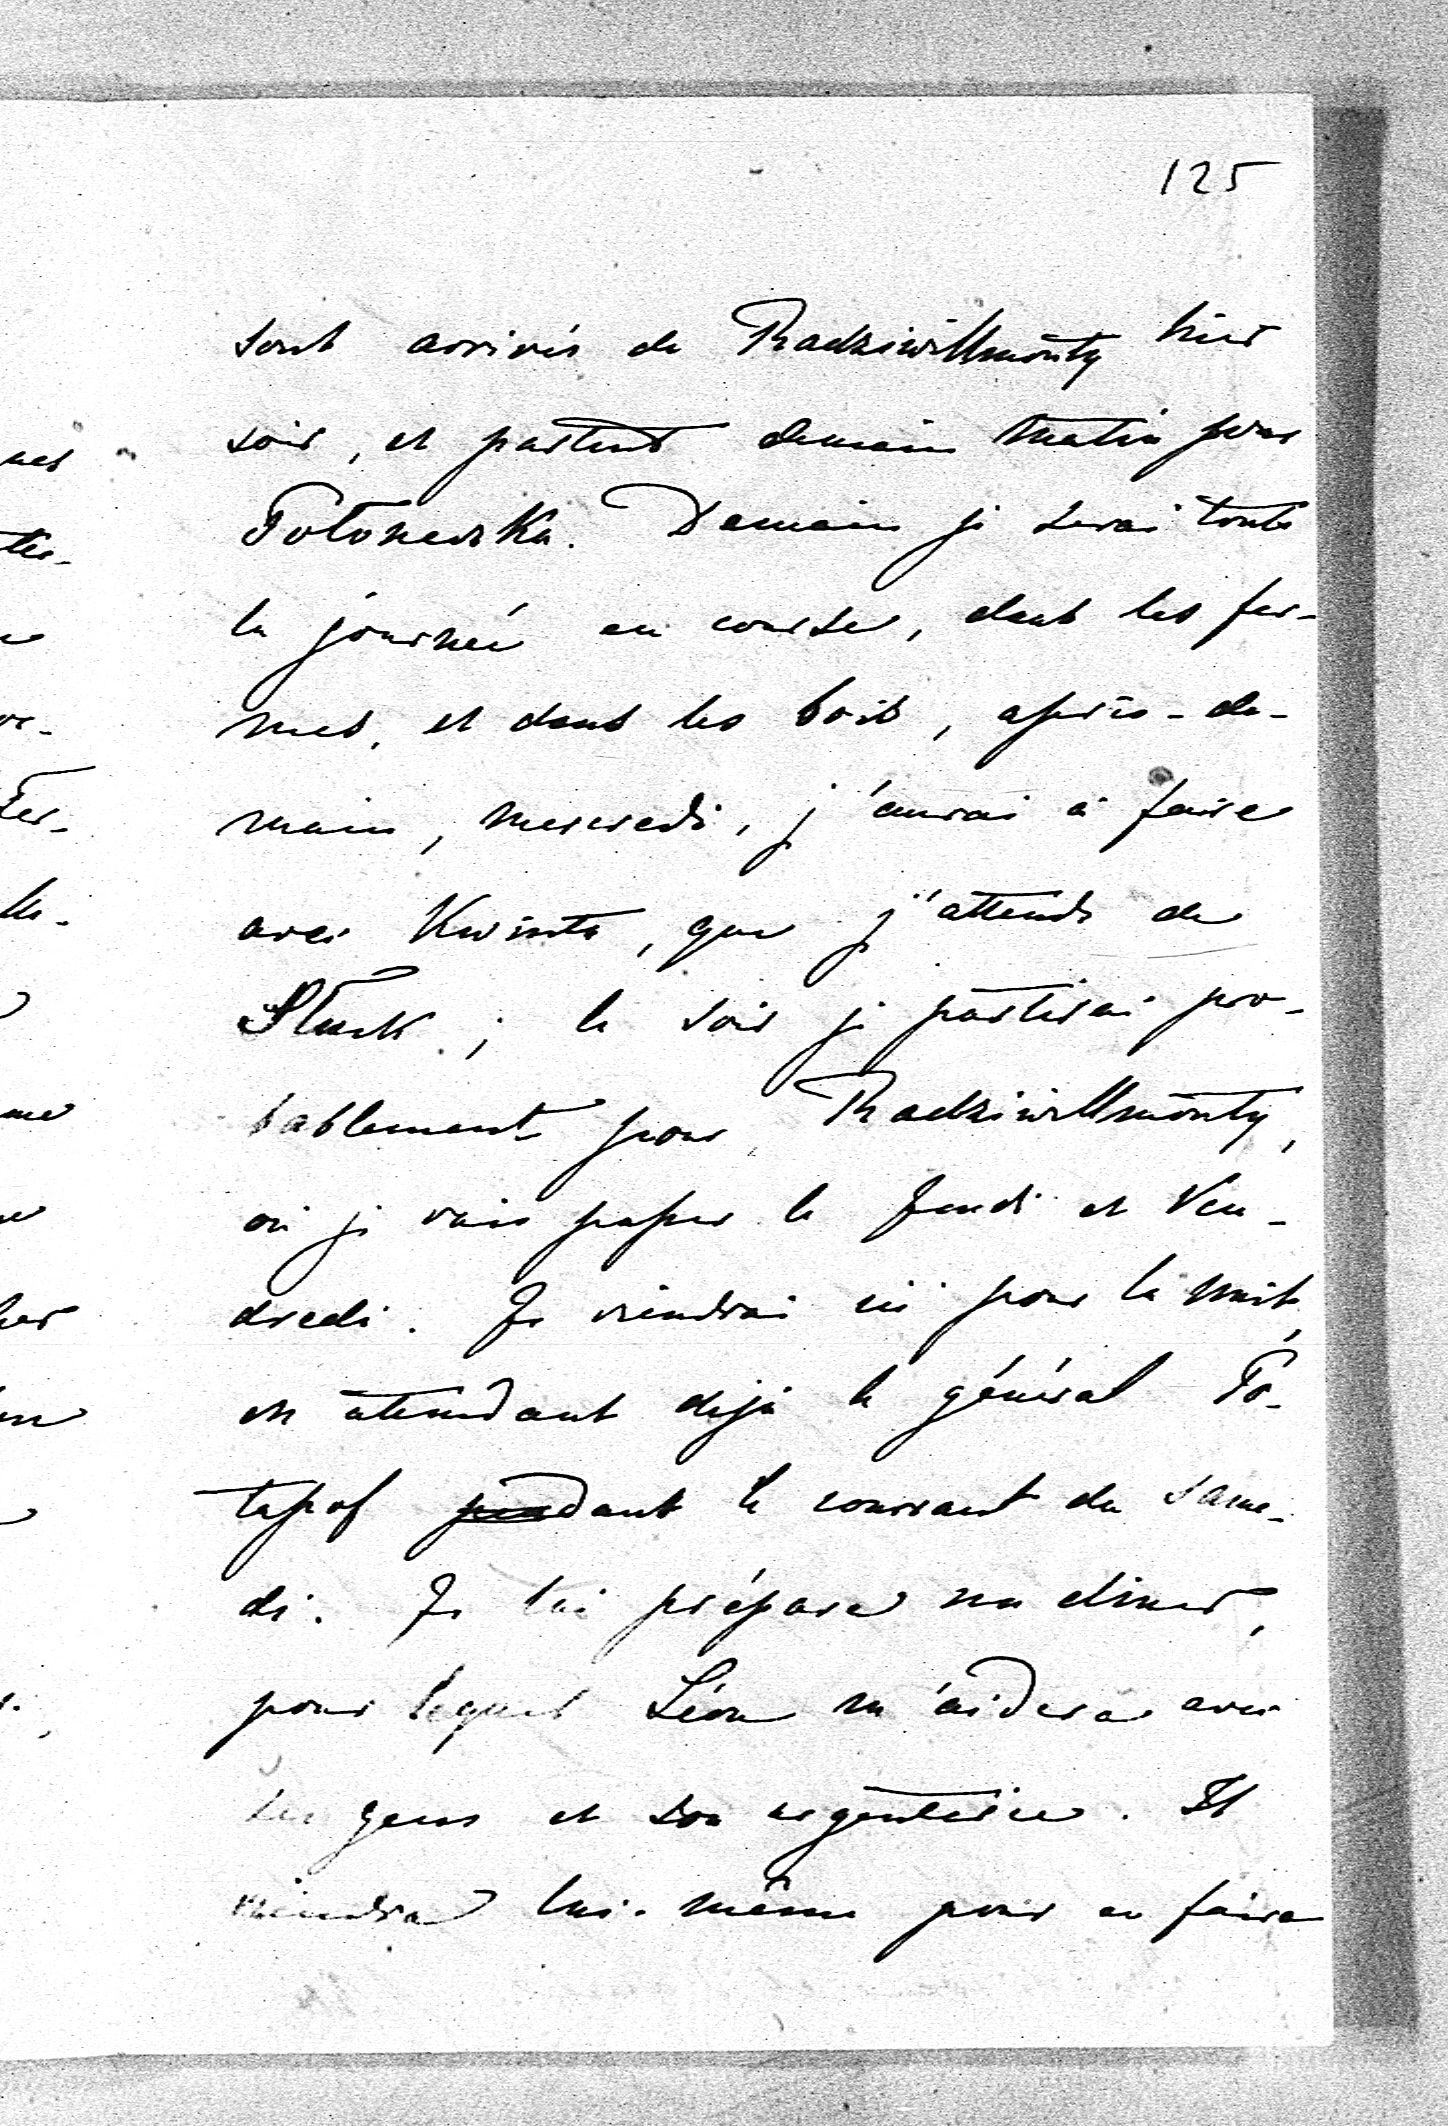 125
sont arrivés de Radziwillmonty hier
soir, et partent demain matin pour
Połoneczka. Demain je serai toute
la journée en course, dans les fer-
mes, et dans les bois, après-de-
main, mercredi, j'aurai à faire
avec Kwinta, que j'attends de
Słuck; le soir je partirai pro-
bablement pour Radziwillmonty,
où je vais passer le Jeudi et Ven-
dredi. Je viendrai ici pour la nuit,
en attendant déjà le général Po-
tapof dant le courant du same-
di. Je lui prépare un diner,
pour lequel Léon m'aidera avec
ses gens et son argenterie. Il
viendra lui-même pour en faire